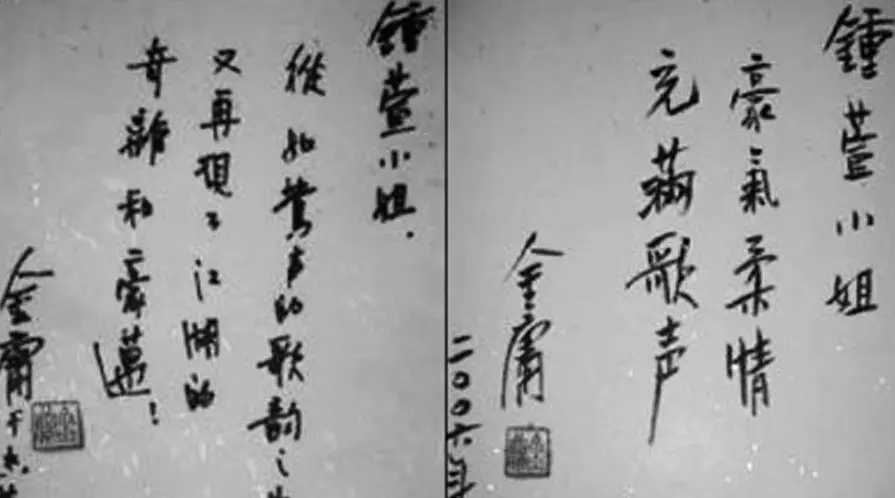 鍾萱小姐.
從如鶯声的歌韵之
又再現了江湖的
奇 和豪邁！
金庸于
鍾萱小姐
豪氣柔情
充滿歌声
金庸
二〇〇六年